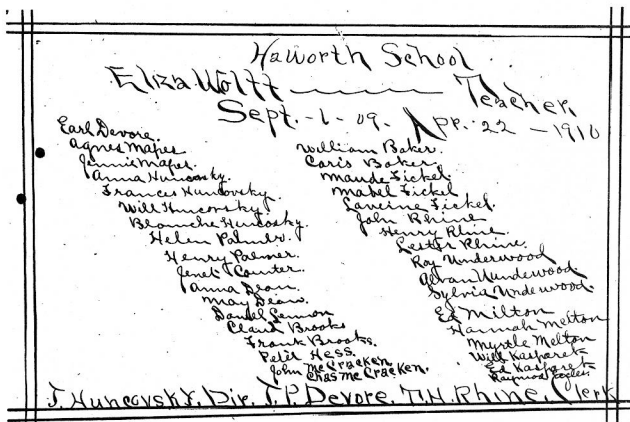 Haworth School
Eliza Woltt Teacher
Sept. - 1 - 09. Apr. 22 - 1910
Earl Devore.
Agnes Mapes
Jennie Mapes.
Anna Huncovsky.
Frances Huncovsky.
Will Huncovsky.
Blanche Huncosky.
Helen Palmer.
Henry Palmer.
Jenet Counter.
Anna Dean.
May Dean.
Daniel Lennon
Claud Brooks
Frank Brooks.
Peter Hess.
John McCracken
Chas McCracken.
William Baker.
Coris Baker.
Maude Fickel.
Mabel Fickel
Laveine Fickel.
John Rhine
Henry Rhine.
Lester Rhine.
Roy Underwood
Alvan Uundewood
Sylvia Underwood.
Ed Milton
Hannah Melton
Myrtle Melton
Will Kasparek
Ed Kasparek
Raymond
J. Huncovsky, Dir. J.P. Devore. T.H. Rhine, Clerk